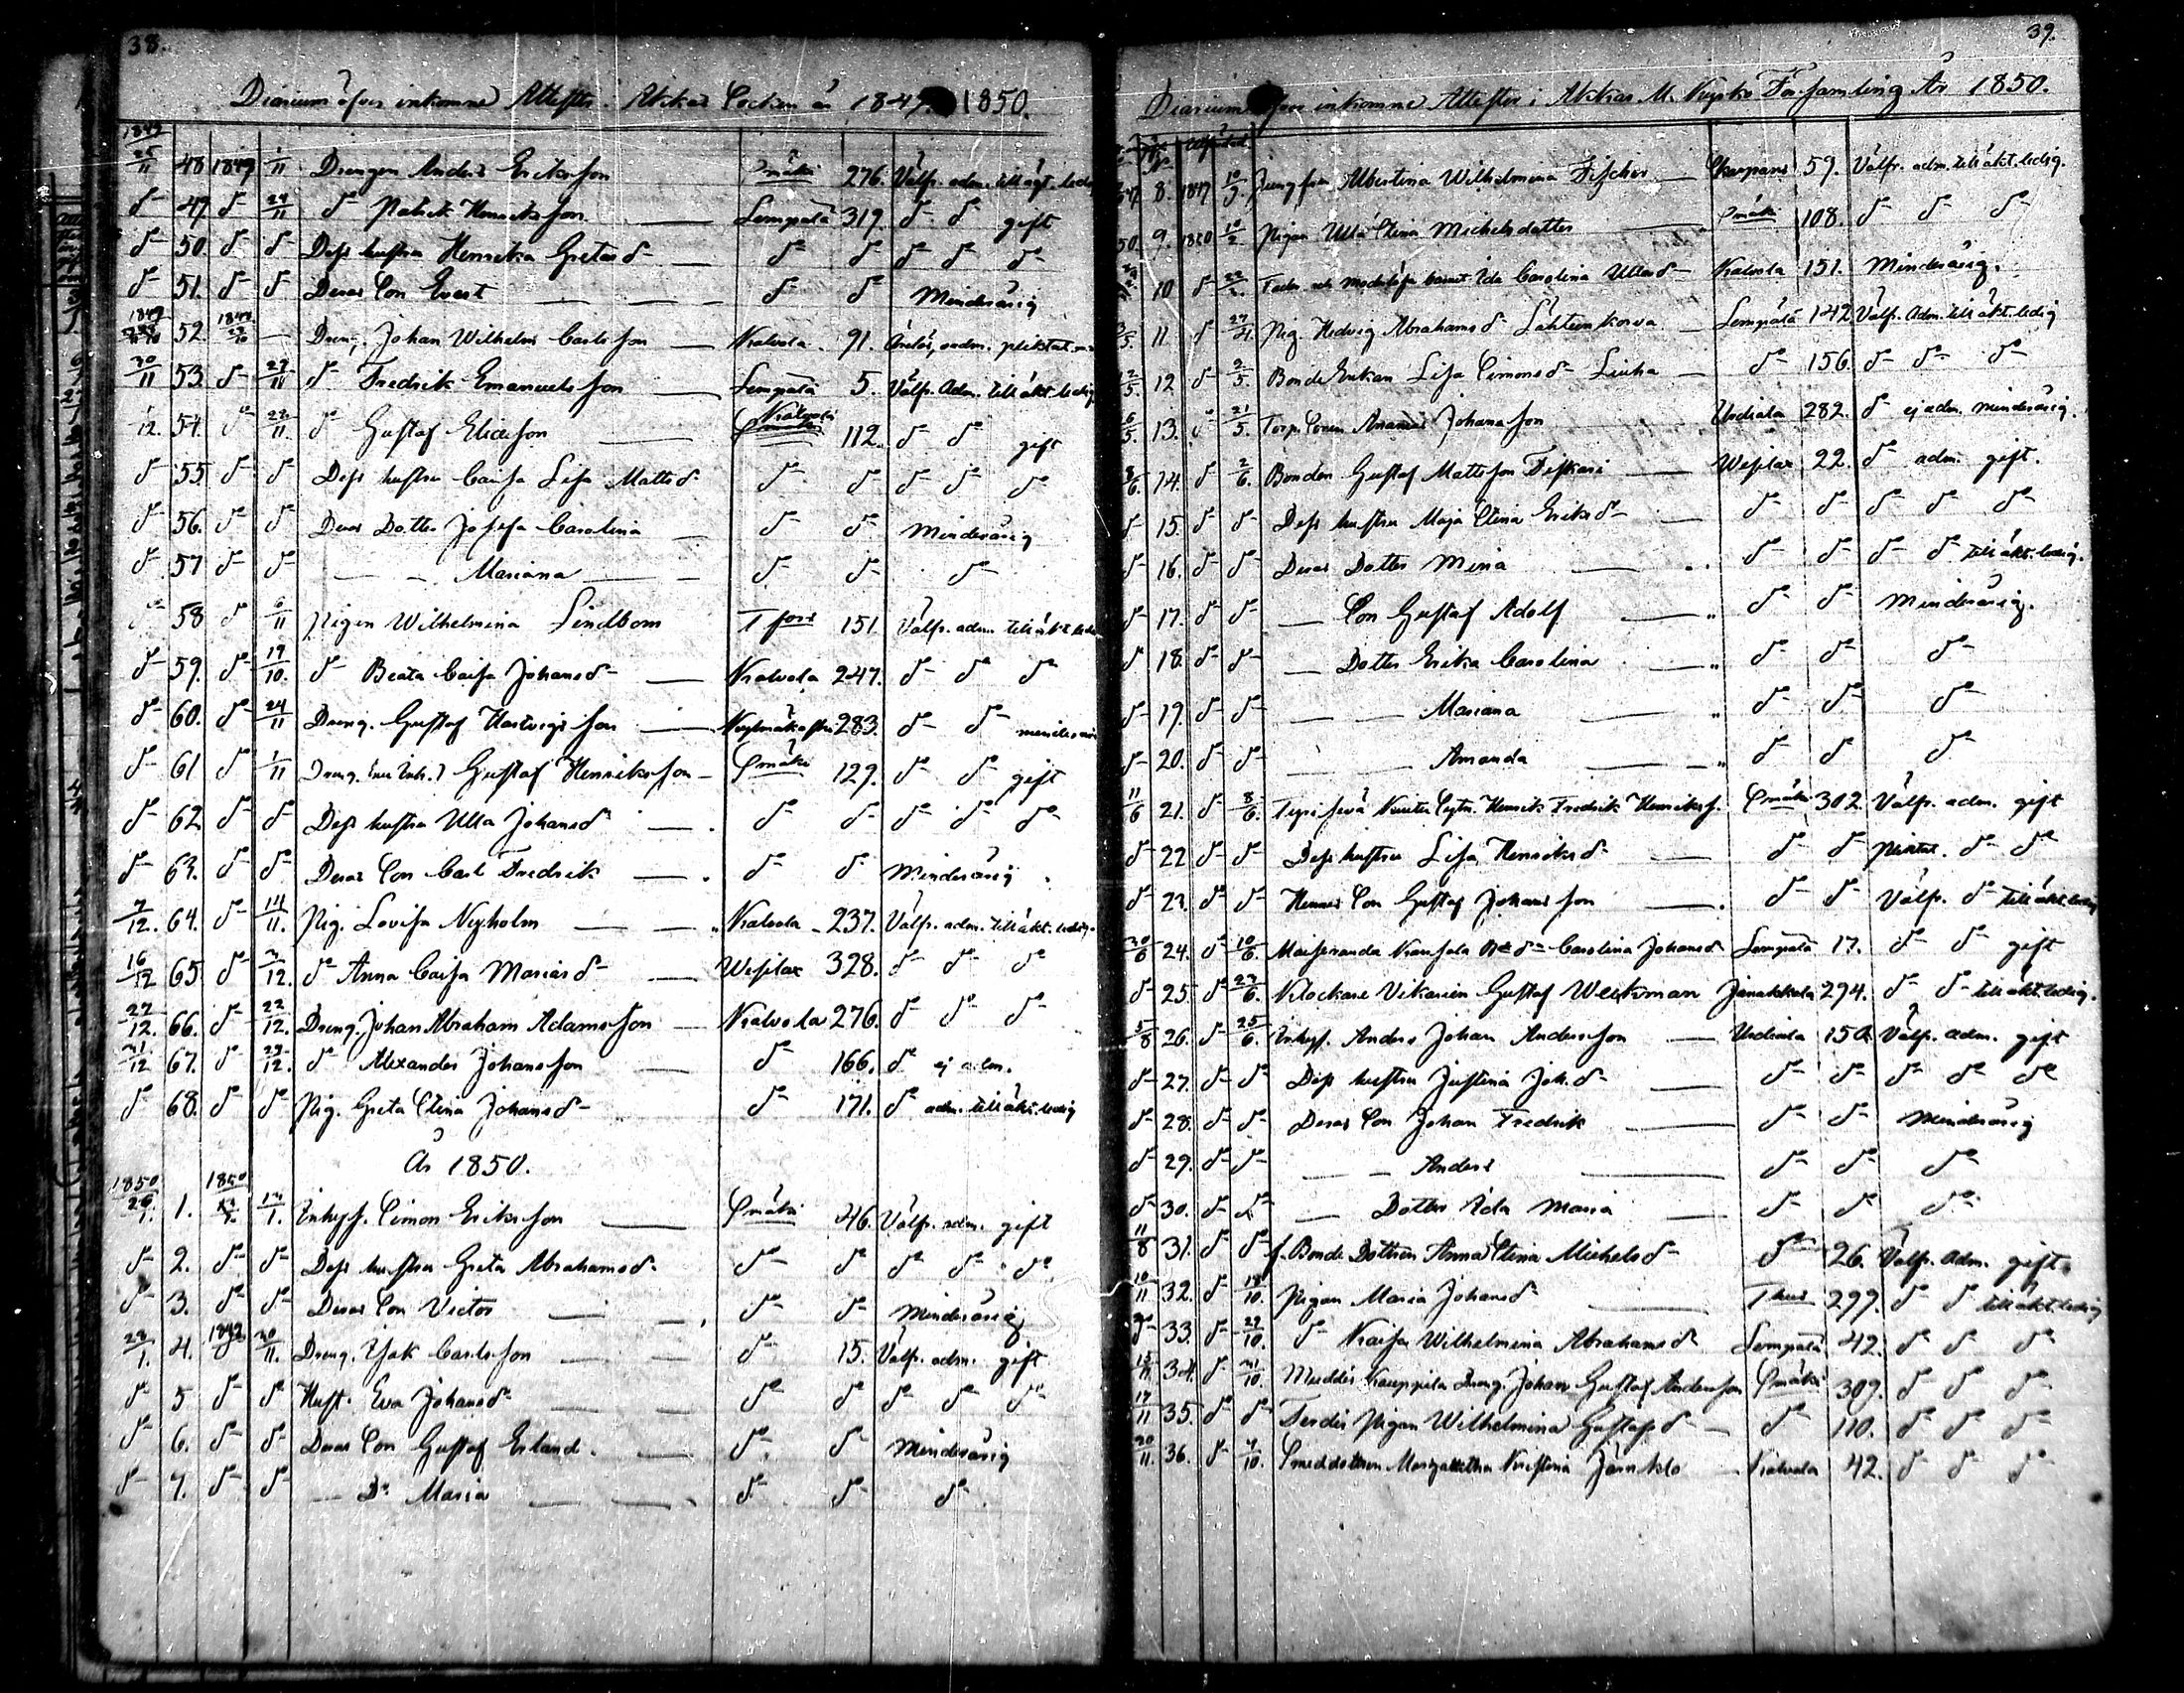 38.
Diarium öfver inkomne Attester i Akkas Socken år 1849. 1850.
1849
25/11 48 1849 1/11 Drengen Anders Eriksson Småki 276. Välfr. adm. till ägt. ledig
d:o 49 d:o 24/11 d:o Patrik Henriksson Lempälä 319. d:o d:o gift
d:o 50. d:o d:o Dess hustru Henrika Gretasd:r d:o d:o d:o d:o d:o
d:o 51. d:o d:o Deras Son Evert d:o d:o Minderårig
1849 52. 1849 Dreng. Johan Wilhelm Carlsson Kalvola 91.
30/11 53. d:o 27/11 d:o Fredrik Emanuelsson Lempälä 5. Välfr. Adm. till äkt. ledig
1/12. 54. d:o 22/11. d:o Gustaf Ericsson Kalvola 112. d:o d:o gift
d:o 55 d:o d:o Dess hustru Caisa Lisa Mattsd:r d:o d:o d:o d:o d:o
d:o 56. d:o d:o Deras Dotter Josefa Carolina d:o d:o Minderårig
d:o 57 d:o d:o Mariana d:o d:o d:o
d:o 58 d:o 6/11 Pigan Wilhelmina Lindbom T fors 151 Välfr. adm. till äkt. ledig
d:o 59. d:o 19/10. d:o Beata Caisa Johansd:r Kalvola 247. d:o d:o d:o
d:o 60. d:o 24/11 Dreng. Gustaf Hartvigsson 283. d:o d:o
d:o 61 d:o 1/11 Dreng. Gustaf Henriksson Småki 129. d:o d:o gift
d:o 62 d:o d:o Dess hustru Ulla Johansd:r d:o d:o d:o d:o d:o
d:o 63. d:o d:o Deras Son Carl Fredrik d:o d:o Minderårig
7/12. 64. d:o 14/11. Pig. Lovisa Nyholm Kalvola 237. Välfr. adm. till äkt. ledig.
16/12 65 d:o 3/12. d:o Anna Caisa Mariasd:r Wesilax 328. d:o d:o d:o
27/12. 66. d:o 22/12. Dreng. Johan Abraham Adamsson Kalvola 276. d:o d:o d:o
31/12 67. d:o 29/12. d:o Alexander Johansson d:o 166. d:o ej adm.
d:o 68. d:o d:o Pig. Greta Stina Johansd:r d:o 171. d:o adm. till äkt. ledig
År 1850.
1850 1850
26/1. 1. 13/1. Inhys. Simon Eriksson Småki 46. Välfr. adm. gift
d:o 2. d:o d:o Dess hustru Greta Abrahamsd:r d:o d:o d:o d:o d:o
d:o 3. d:o d:o Deras Son Victor d:o d:o Minderårig
28/1. 4. 1849 30/11. Dreng. Isak Carlsson d:o 15. Välfr. adm. gift
d:o 5 d:o d:o Hust. Eva Johansd:r d:o d:o d:o d:o d:o
d:o 6. d:o d:o Deras Son Gustaf Erland d:o d:o Minderårig
d:o 7. d:o d:o D:r Maria d:o d:o d:o
39.
Diarium öfver inkomne Attester i Akkas M. Kyrko Församling År 1850.
8. 1847 10/9. Jungfru Albertina Wilhelmina Fischer 59. Välfr. adm. till äkt. ledig.
9. 1850 10/2. Pigan Ulla Stina Michelsdotter Småki 108. d:o d:o d:o
10 d:o 22/2. Fader och Moderlösa barnet Ida Carolina Ullasd:r Kalvola 151. Minderårig.
11 d:o 27/4 Pig. Hedvig Abrahamsd:r Lähtenkorva Lempälä 142. Välfr. Adm. till äkt. ledig
12/5. 12 d:o 2/5. Bonde Enkan Lisa Simonsd:r Liuha d:o 156. d:o d:o d:o
13. d:o 21/5. Torp. Sonen Ananias Johansson Urdiala 282. d:o ej adm. minderårig.
8/6. 14. d:o 2/6. Bonden Gustaf Mattsson Fiskari Wesilax 22. d:o adm. gift.
d:o 15. d:o d:o Dess hustru Maja Stina Eriksd:r d:o d:o d:o d:o d:o
d:o 16. d:o d:o Deras Dotter Mina d:o d:o d:o d:o till äkt. ledig.
d:o 17. d:o d:o Son Gustaf Adolf d:o d:o Minderårig.
d:o 18. d:o d:o Dotter Erika Carolina d:o d:o d:o
d:o 19. d:o d:o Mariana d:o d:o d:o
d:o 20. d:o d:o Amanda d:o d:o d:o
11/6 21. d:o 8/6. Henrik Fredrik Henrikss. Småki 302 Välfr. adm. gift
d:o 22 d:o d:o Dess hustru Lisa Henriksd:r d:o d:o d:o d:o
d:o 23. d:o d:o Hennes Son Gustaf Johansson d:o d:o Välfr. d:o till äkt. ledig
30/6 24. d:o 10/6. Carolina Johansd:r Lempälä 17. d:o d:o gift
d:o 25. d:o 27/6. Klockare Vikarien Gustaf Werkman Janakkala 294. d:o d:o till äkt. ledig.
5/8 26. d:o 25/6. Inhys. Anders Johan Andersson Urdiala 150. Välfr. adm. gift
d:o 27. d:o d:o Dess hustru Justina Joh.d:r d:o d:o d:o d:o d:o
d:o 28. d:o d:o Deras Son Johan Fredrik d:o d:o Minderårig
d:o 29. d:o d:o Anders d:o d:o d:o
d:o 30. d:o d:o Dotter Ida Maria d:o d:o d:o
11/8 31. d:o d:o f. Bonde Dottren Anna Stina Michelsd:r d:o 26. Välfr. Adm. gift.
10/11 32. d:o 18/10. Pigan Maria Johansd:r T hus 299. d:o d:o till äkt. ledig
d:o 33. d:o 29/10. d:o Kaisa Wilhelmina Abrahamsd:r Lempälä 42. d:o d:o d:o
34. d:o 31/10. Kauppila Dreng. Johan Gustaf Andersson Småki 309. d:o d:o d:o
17/11 35. d:o d:o Pigan Wilhelmina Gustafsd:r d:o 110. d:o d:o d:o
20/11. 36. d:o 4/10. Smeddottren Margaretha Kristina Kalvola 42. d:o d:o d:o